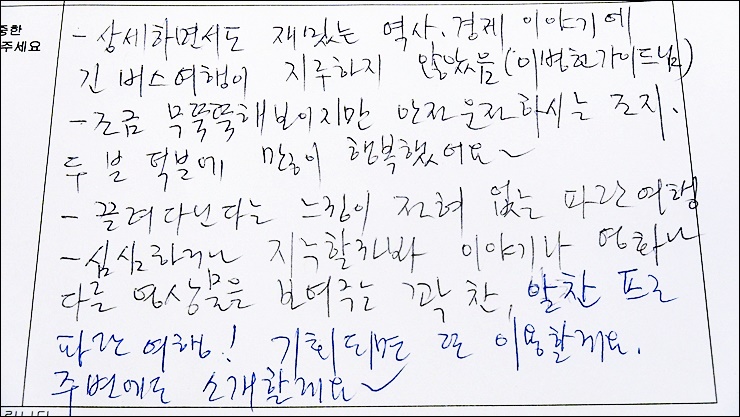 중한
주세요
- 상세하면서도 재밌는 역사.경제 이야기에
긴 버스여행이 지루하지 않았음(이변헌가이드님)
- 조금 무뚝뚝해보이지만 안전운전하시는 조지.
두 분 덕분에 많이 행복했어요~
- 끌려다닌다는 느낌이 전혀 없는 파란여행
- 심심하거나 지루할까봐 이야기나 영화나
다른 영상물을 보여주는 꽉 찬, 알찬 프로
파란여행! 기회되면 또 이용할게요.
주변에도 소개할게요~